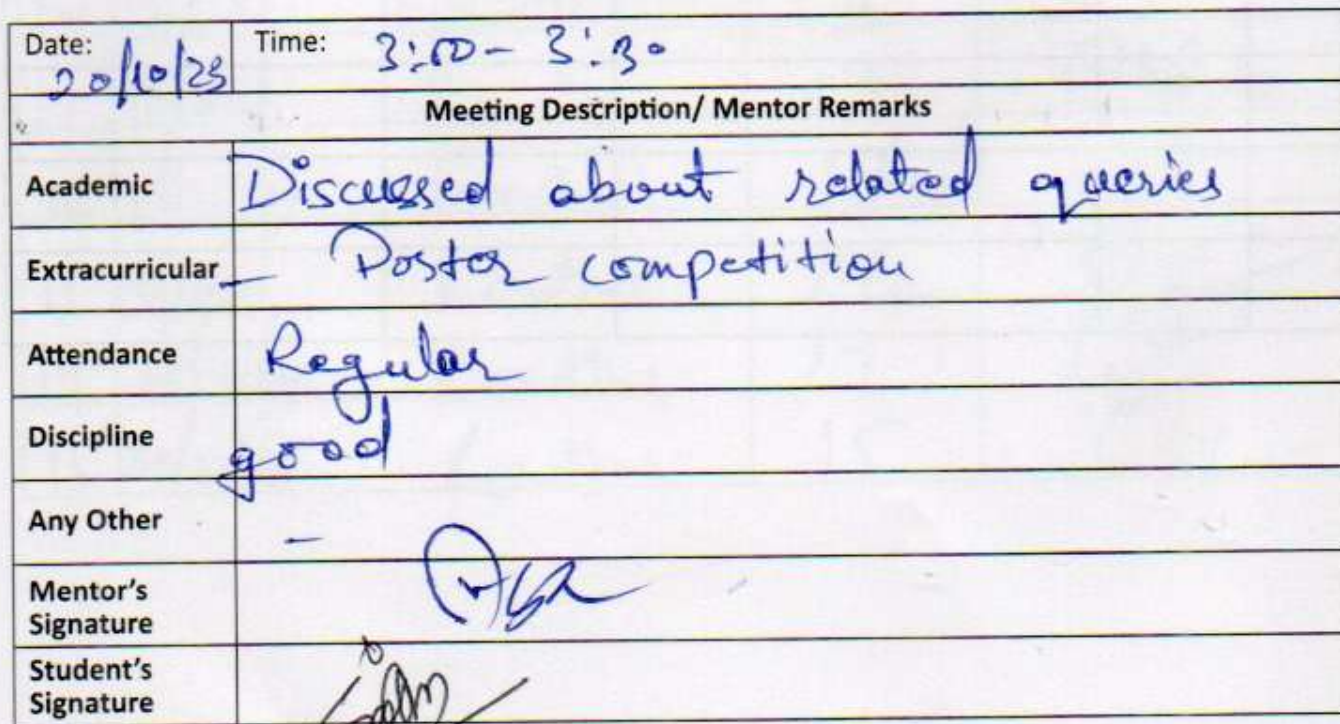 Date: 20/10/23 Time: 3:00 - 3:30
Meeting Description/ Mentor Remarks
Academic Discussed about related queries
Extracurricular - Poster competition
Attendance Regular
Discipline good
Any Other -
Mentor's
Signature
Student's
Signature